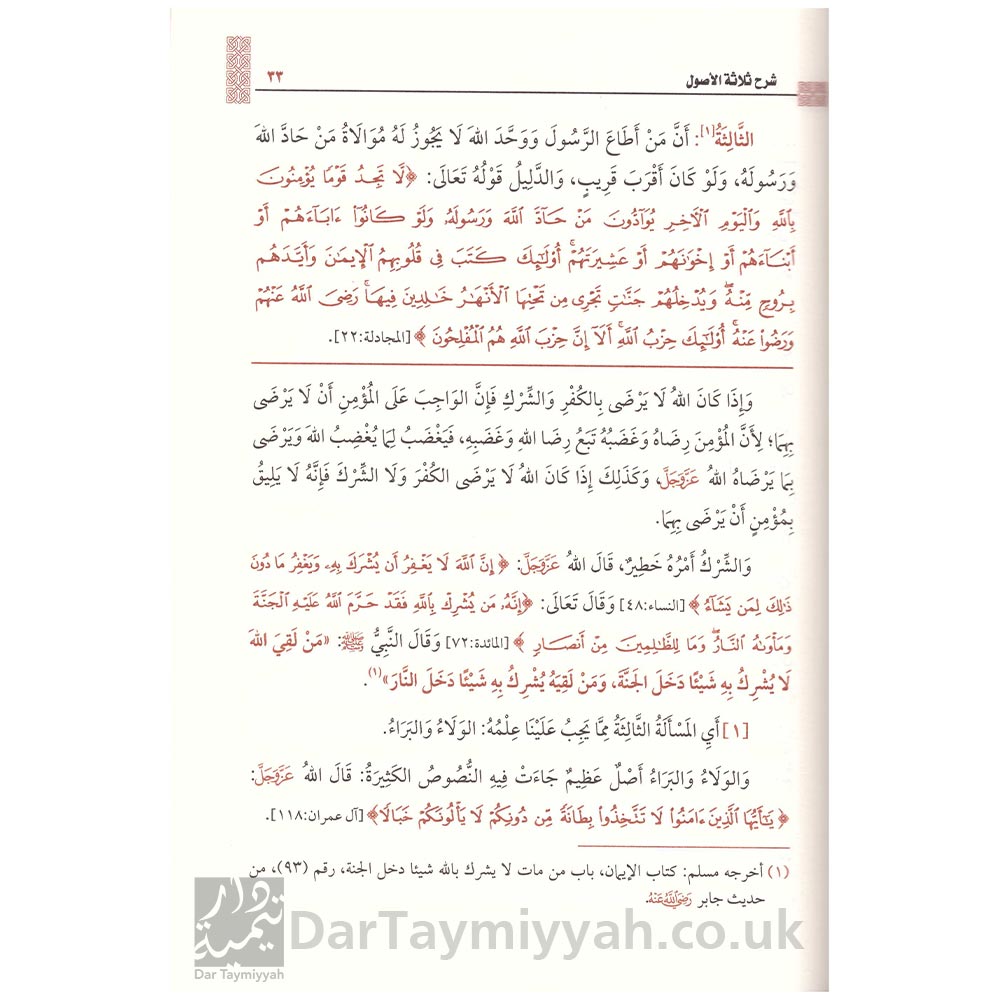 شرح ثلاثة الأصول
٣٣
الثَّالِثَةُ[١]: أَنَّ مَنْ أَطَاعَ الرَّسُولَ وَوَحَّدَ اللهَ لَا يَجُوزُ لَهُ مُوَالَاةُ مَنْ حَادَّ اللهَ
وَرَسُولَهُ، وَلَوْ كَانَ أَقْرَبَ قَرِيبٍ، وَالدَّلِيلُ قَوْلُهُ تَعَالَى: ﴿لَّا تَجِدُ قَوْمًا يُؤْمِنُونَ
بِاللَّهِ وَالْيَوْمِ الْآخِرِ يُوَآدُّونَ مَنْ حَآدَّ اللَّهَ وَرَسُولَهُۥ وَلَوْ كَانُوٓا۟ ءَابَآءَهُمْ أَوْ
أَبْنَآءَهُمْ أَوْ إِخْوَٰنَهُمْ أَوْ عَشِيرَتَهُمْ ۚ أُو۟لَٰٓئِكَ كَتَبَ فِى قُلُوبِهِمُ الْإِيمَٰنَ وَأَيَّدَهُم
بِرُوحٍ مِّنْهُ ۖ وَيُدْخِلُهُمْ جَنَّٰتٍ تَجْرِى مِن تَحْتِهَا الْأَنْهَٰرُ خَٰلِدِينَ فِيهَا ۚ رَضِىَ اللَّهُ عَنْهُمْ
وَرَضُوا۟ عَنْهُ ۚ أُو۟لَٰٓئِكَ حِزْبُ اللَّهِ ۚ أَلَآ إِنَّ حِزْبَ اللَّهِ هُمُ الْمُفْلِحُونَ﴾ [المجادلة:٢٢].
وَإِذَا كَانَ اللهُ لَا يَرْضَى بِالكُفْرِ وَالشِّرْكِ فَإِنَّ الوَاجِبَ عَلَى المُؤْمِنِ أَنْ لَا يَرْضَى
بِهِمَا؛ لِأَنَّ المُؤْمِنَ رِضَاهُ وَغَضَبُهُ تَبَعُ رِضَا اللهِ وَغَضَبِهِ، فَيَغْضَبُ لِمَا يُغْضِبُ اللهَ وَيَرْضَى
بِمَا يَرْضَاهُ اللهُ عَزَّوَجَلَّ، وَكَذَلِكَ إِذَا كَانَ اللهُ لَا يَرْضَى الكُفْرَ وَلَا الشِّرْكَ فَإِنَّهُ لَا يَلِيقُ
بِمُؤْمِنٍ أَنْ يَرْضَى بِهِمَا.
وَالشِّرْكُ أَمْرُهُ خَطِيرٌ، قَالَ اللهُ عَزَّوَجَلَّ: ﴿إِنَّ اللَّهَ لَا يَغْفِرُ أَن يُشْرَكَ بِهِۦ وَيَغْفِرُ مَا دُونَ
ذَٰلِكَ لِمَن يَشَآءُ﴾ [النساء:٤٨] وَقَالَ تَعَالَى: ﴿إِنَّهُۥ مَن يُشْرِكْ بِاللَّهِ فَقَدْ حَرَّمَ اللَّهُ عَلَيْهِ الْجَنَّةَ
وَمَأْوَىٰهُ النَّارُ ۖ وَمَا لِلظَّٰلِمِينَ مِنْ أَنصَارٍ﴾ [المائدة:٧٢] وَقَالَ النَّبِيُّ ﷺ: «مَنْ لَقِيَ اللهَ
لَا يُشْرِكُ بِهِ شَيْئًا دَخَلَ الجَنَّةَ، وَمَنْ لَقِيَهُ يُشْرِكُ بِهِ شَيْئًا دَخَلَ النَّارَ»(١).
[١] أَيِ المَسْأَلَةُ الثَّالِثَةُ مِمَّا يَجِبُ عَلَيْنَا عِلْمُهُ: الوَلَاءُ وَالبَرَاءُ.
وَالوَلَاءُ وَالبَرَاءُ أَصْلٌ عَظِيمٌ جَاءَتْ فِيهِ النُّصُوصُ الكَثِيرَةُ: قَالَ اللهُ عَزَّوَجَلَّ:
﴿يَٰٓأَيُّهَا الَّذِينَ ءَامَنُوا۟ لَا تَتَّخِذُوا۟ بِطَانَةً مِّن دُونِكُمْ لَا يَأْلُونَكُمْ خَبَالًا﴾ [آل عمران:١١٨].
(١) أخرجه مسلم: كتاب الإيمان، باب من مات لا يشرك بالله شيئا دخل الجنة، رقم (٩٣)، من
حديث جابر رَضِيَ اللَّهُ عَنْهُ.
دار تيمية
Dar Taymiyyah
DarTaymiyyah.co.uk